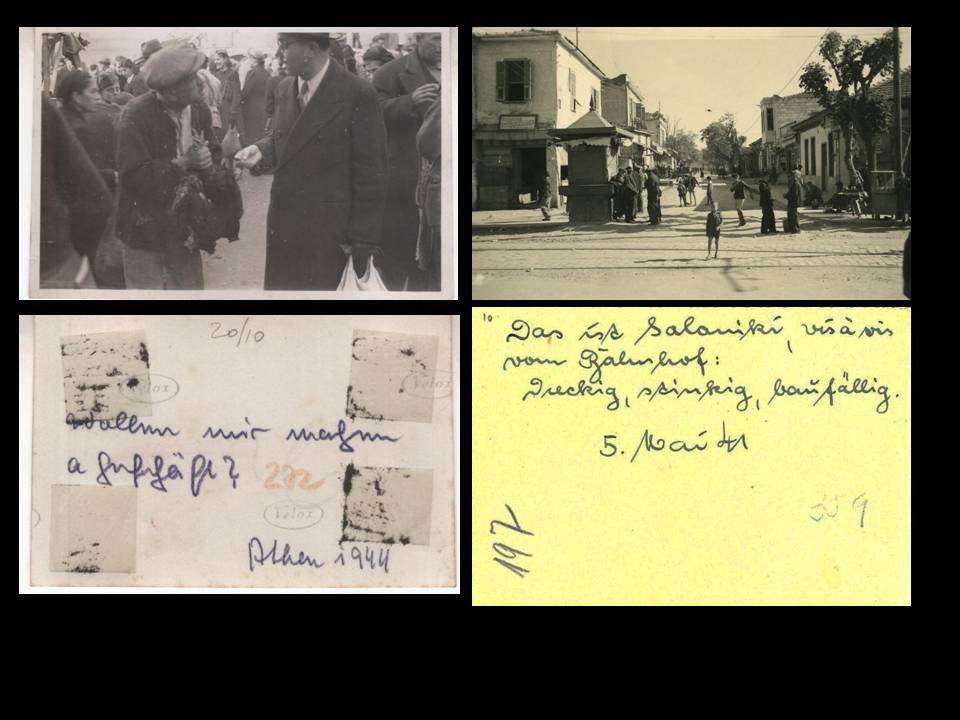 20/10
Velox
Velox
Wollen mir machen
a Geschäft?
272
Velox
Athen 1944
10
Das ist Saloniki, visà vis
vom Bahnhof:
Dreckig, stinkig, baufällig.
5. Mai 41
359
197